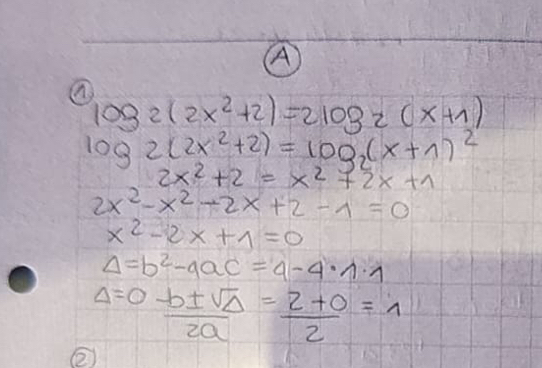 A
1
log 2(2x²+2)=2log 2 (x+1)
log 2(2x²+2) = log₂(x+1)²
2x²+2 = x²+2x+1
2x²-x²-2x+2-1=0
x²-2x+1=0
Δ=b²-4ac=4-4·1·1
Δ=0 -b±√Δ/2a = 2+0/2 = 1
2